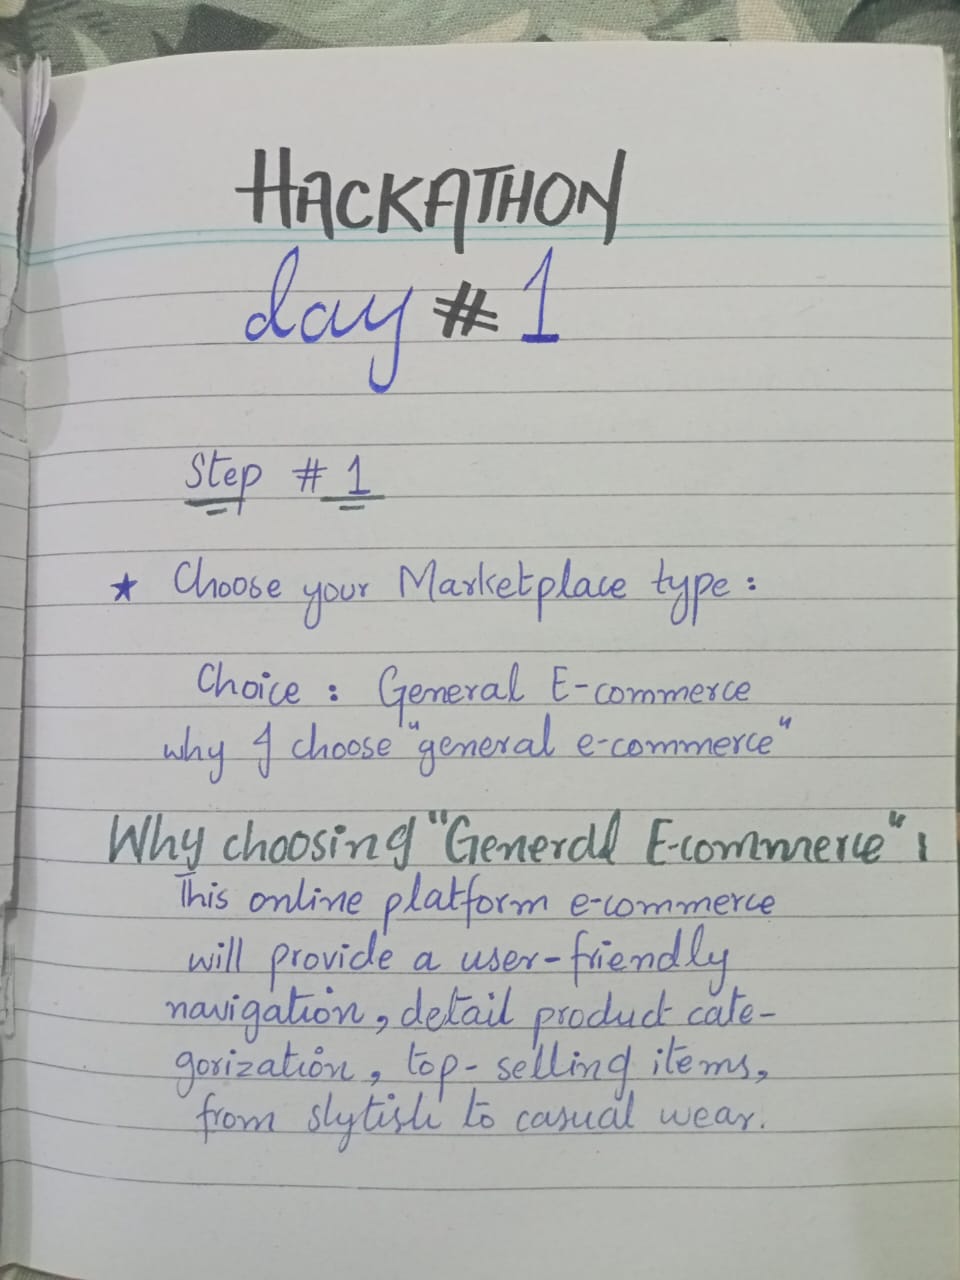 HACKATHON
day # 1
Step # 1
★ Choose your Marketplace type :
Choice : General E-commerce
why I choose "general e-commerce"
Why choosing "Generall E-commerce" :
This online platform e-commerce
will provide a user-friendly
navigation, detail product cate-
gorization, top-selling items,
from slytish to casual wear.